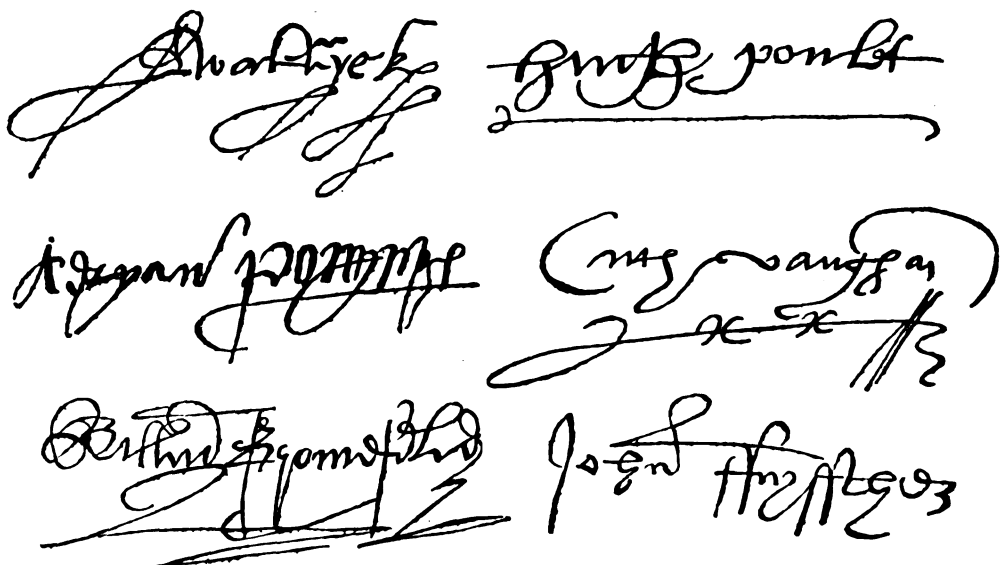 A Warwyck hugh poulet
Adryan ponynge Cuth vaughan
Willm Bromefeld John